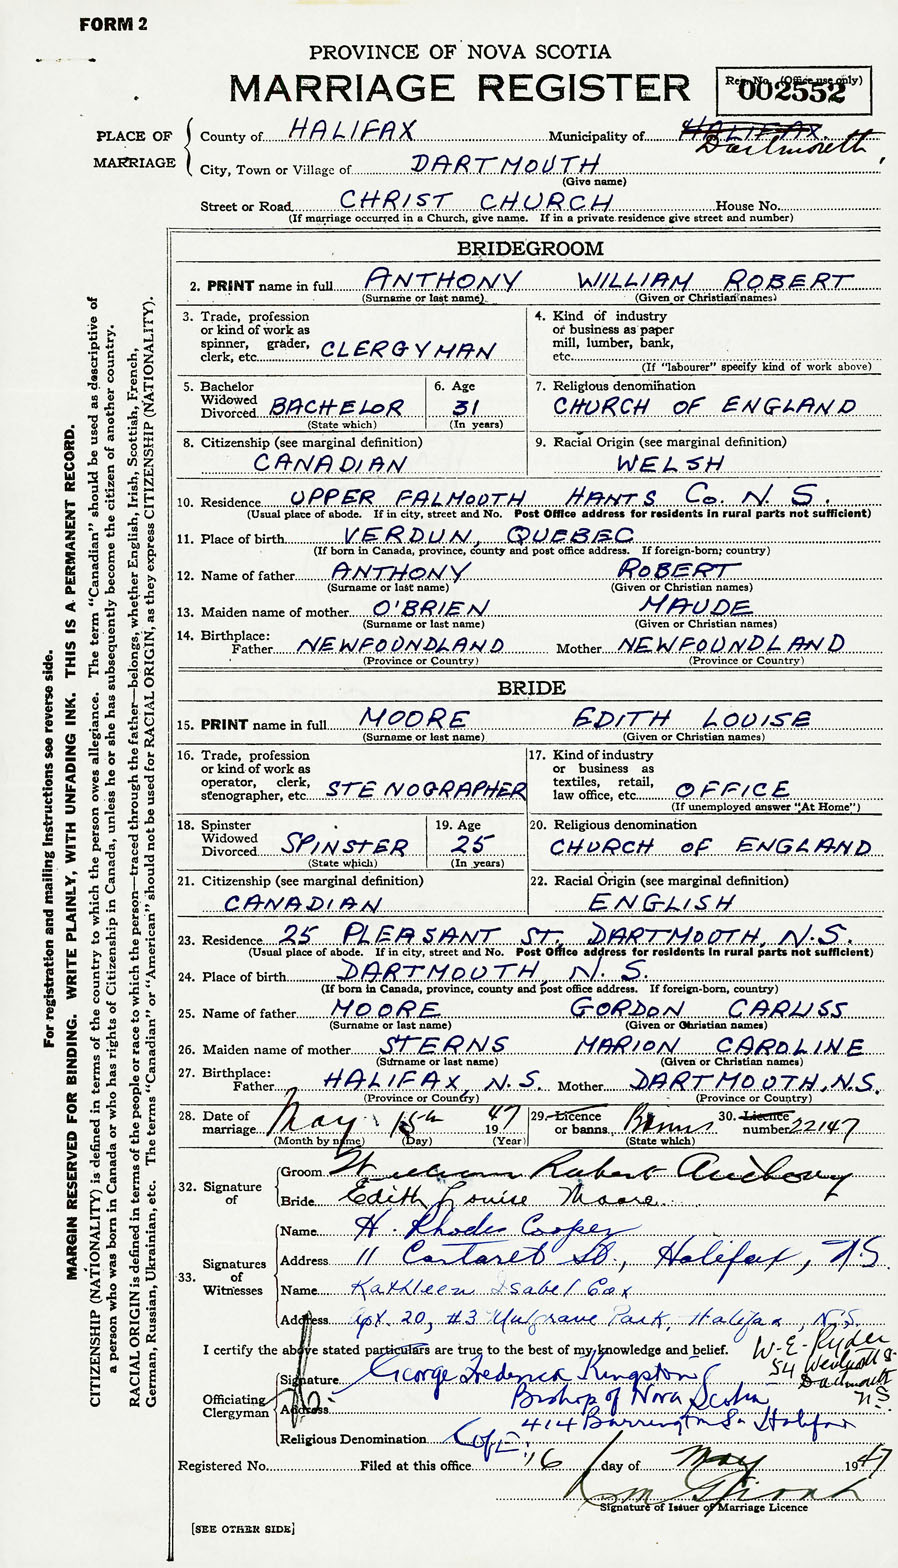 FORM 2
PROVINCE OF NOVA SCOTIA
MARRIAGE REGISTER
Reg. No. (Office use only)
002552
PLACE OF MARRIAGE
County of HALIFAX Municipality of HALIFAX. Dartmouth
City, Town or Village of DARTMOUTH
(Give name)
Street or Road CHRIST CHURCH House No.
(If marriage occurred in a Church, give name. If in a private residence give street and number)
BRIDEGROOM
2. PRINT name in full ANTHONY WILLIAM ROBERT
(Surname or last name) (Given or Christian names)
3. Trade, profession or kind of work as spinner, grader, clerk, etc. CLERGYMAN
4. Kind of industry or business as paper mill, lumber, bank, etc.
(If "labourer" specify kind of work above)
5. Bachelor Widowed Divorced BACHELOR
(State which)
6. Age 31
(In years)
7. Religious denomination
CHURCH OF ENGLAND
8. Citizenship (see marginal definition)
CANADIAN
9. Racial Origin (see marginal definition)
WELSH
10. Residence UPPER FALMOUTH HANTS Co. N. S.
(Usual place of abode. If in city, street and No. Post Office address for residents in rural parts not sufficient)
11. Place of birth VERDUN, QUEBEC
(If born in Canada, province, county and post office address. If foreign-born; country)
12. Name of father ANTHONY ROBERT
(Surname or last name) (Given or Christian names)
13. Maiden name of mother O'BRIEN MAUDE
(Surname or last name) (Given or Christian names)
14. Birthplace:
Father NEWFOUNDLAND Mother NEWFOUNDLAND
(Province or Country) (Province or Country)
BRIDE
15. PRINT name in full MOORE EDITH LOUISE
(Surname or last name) (Given or Christian names)
16. Trade, profession or kind of work as operator, clerk, stenographer, etc. STENOGRAPHER
17. Kind of industry or business as textiles, retail, law office, etc. OFFICE
(If unemployed answer "At Home")
18. Spinster Widowed Divorced SPINSTER
(State which)
19. Age 25
(In years)
20. Religious denomination
CHURCH OF ENGLAND
21. Citizenship (see marginal definition)
CANADIAN
22. Racial Origin (see marginal definition)
ENGLISH
23. Residence 25 PLEASANT ST. DARTMOUTH, N.S.
(Usual place of abode. If in city, street and No. Post Office address for residents in rural parts not sufficient)
24. Place of birth DARTMOUTH, N. S.
(If born in Canada, province, county and post office address. If foreign-born, country)
25. Name of father MOORE GORDON CARLISS
(Surname or last name) (Given or Christian names)
26. Maiden name of mother STERNS MARION CAROLINE
(Surname or last name) (Given or Christian names)
27. Birthplace:
Father HALIFAX, N.S. Mother DARTMOUTH, N.S.
(Province or Country) (Province or Country)
28. Date of marriage May 15th 1947
(Month by name) (Day) (Year)
29. Licence or banns Banns
(State which)
30. Licence number 22147
32. Signature of
Groom William Robert Anthony
Bride Edith Louise Moore.
33. Signatures of Witnesses
Name H. Rhodes Cooper
Address 11 Cartaret St., Halifax, N.S.
Name Kathleen Isabel Cox
Address Apt. 20, #3 Mulgrave Park, Halifax, N.S.
I certify the above stated particulars are true to the best of my knowledge and belief.
W. E. Ryder
54 Wentworth St
Dartmouth
N.S.
Officiating Clergyman
Signature George Frederick Kingston
Bishop of Nova Scotia
Address 414 Barrington St Halifax
Religious Denomination C of E.
Registered No. Filed at this office 16 day of May 1947
Signature of Issuer of Marriage Licence
[SEE OTHER SIDE]
For registration and mailing instructions see reverse side.
MARGIN RESERVED FOR BINDING. WRITE PLAINLY, WITH UNFADING INK. THIS IS A PERMANENT RECORD.
CITIZENSHIP (NATIONALITY) is defined in terms of the country to which the person owes allegiance. The term "Canadian" should be used as descriptive of
a person who was born in Canada or who has rights of Citizenship in Canada, unless he or she has subsequently become the citizen of another country.
RACIAL ORIGIN is defined in terms of the people or race to which the person—traced through the father—belongs, whether English, Irish, Scottish, French,
German, Russian, Ukrainian, etc. The terms "Canadian" or "American" should not be used for RACIAL ORIGIN, as they express CITIZENSHIP (NATIONALITY).